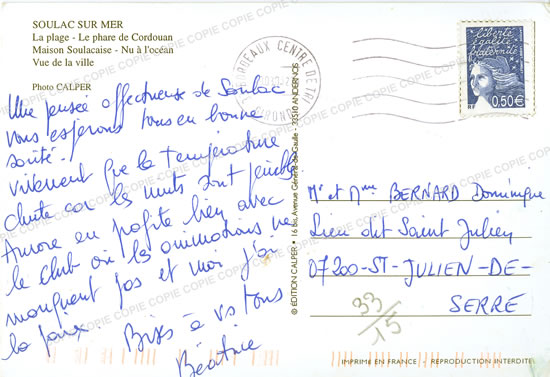 SOULAC SUR MER
La plage - Le phare de Cordouan
Maison Soulacaise - Nu à l'océan
Vue de la ville
Photo CALPER
Une pensée affectueuse de Soulac
Vous espérons tous en bonne
santé.
Vivement que la température
chute car les nuits sont pénibles
Aurore en profite bien avec
le club où les animations ne
manquent pas et moi j'ai
la paix. Bises à vs tous
Béatrice
BORDEAUX CENTRE DE TRI
GIRONDE
liberté
égalité
fraternité
0,50€
© EDITION CALPER • 16 bis, Avenue Général-de-Gaulle - 33510 ANDERNOS
Mr et Mme BERNARD Dominique
Lieu dit Saint Julien
07200-ST-JULIEN-DE-
SERRE
33/15
IMPRIMÉ EN FRANCE - REPRODUCTION INTERDITE
COPIE COPIE COPIE COPIE COPIE COPIE